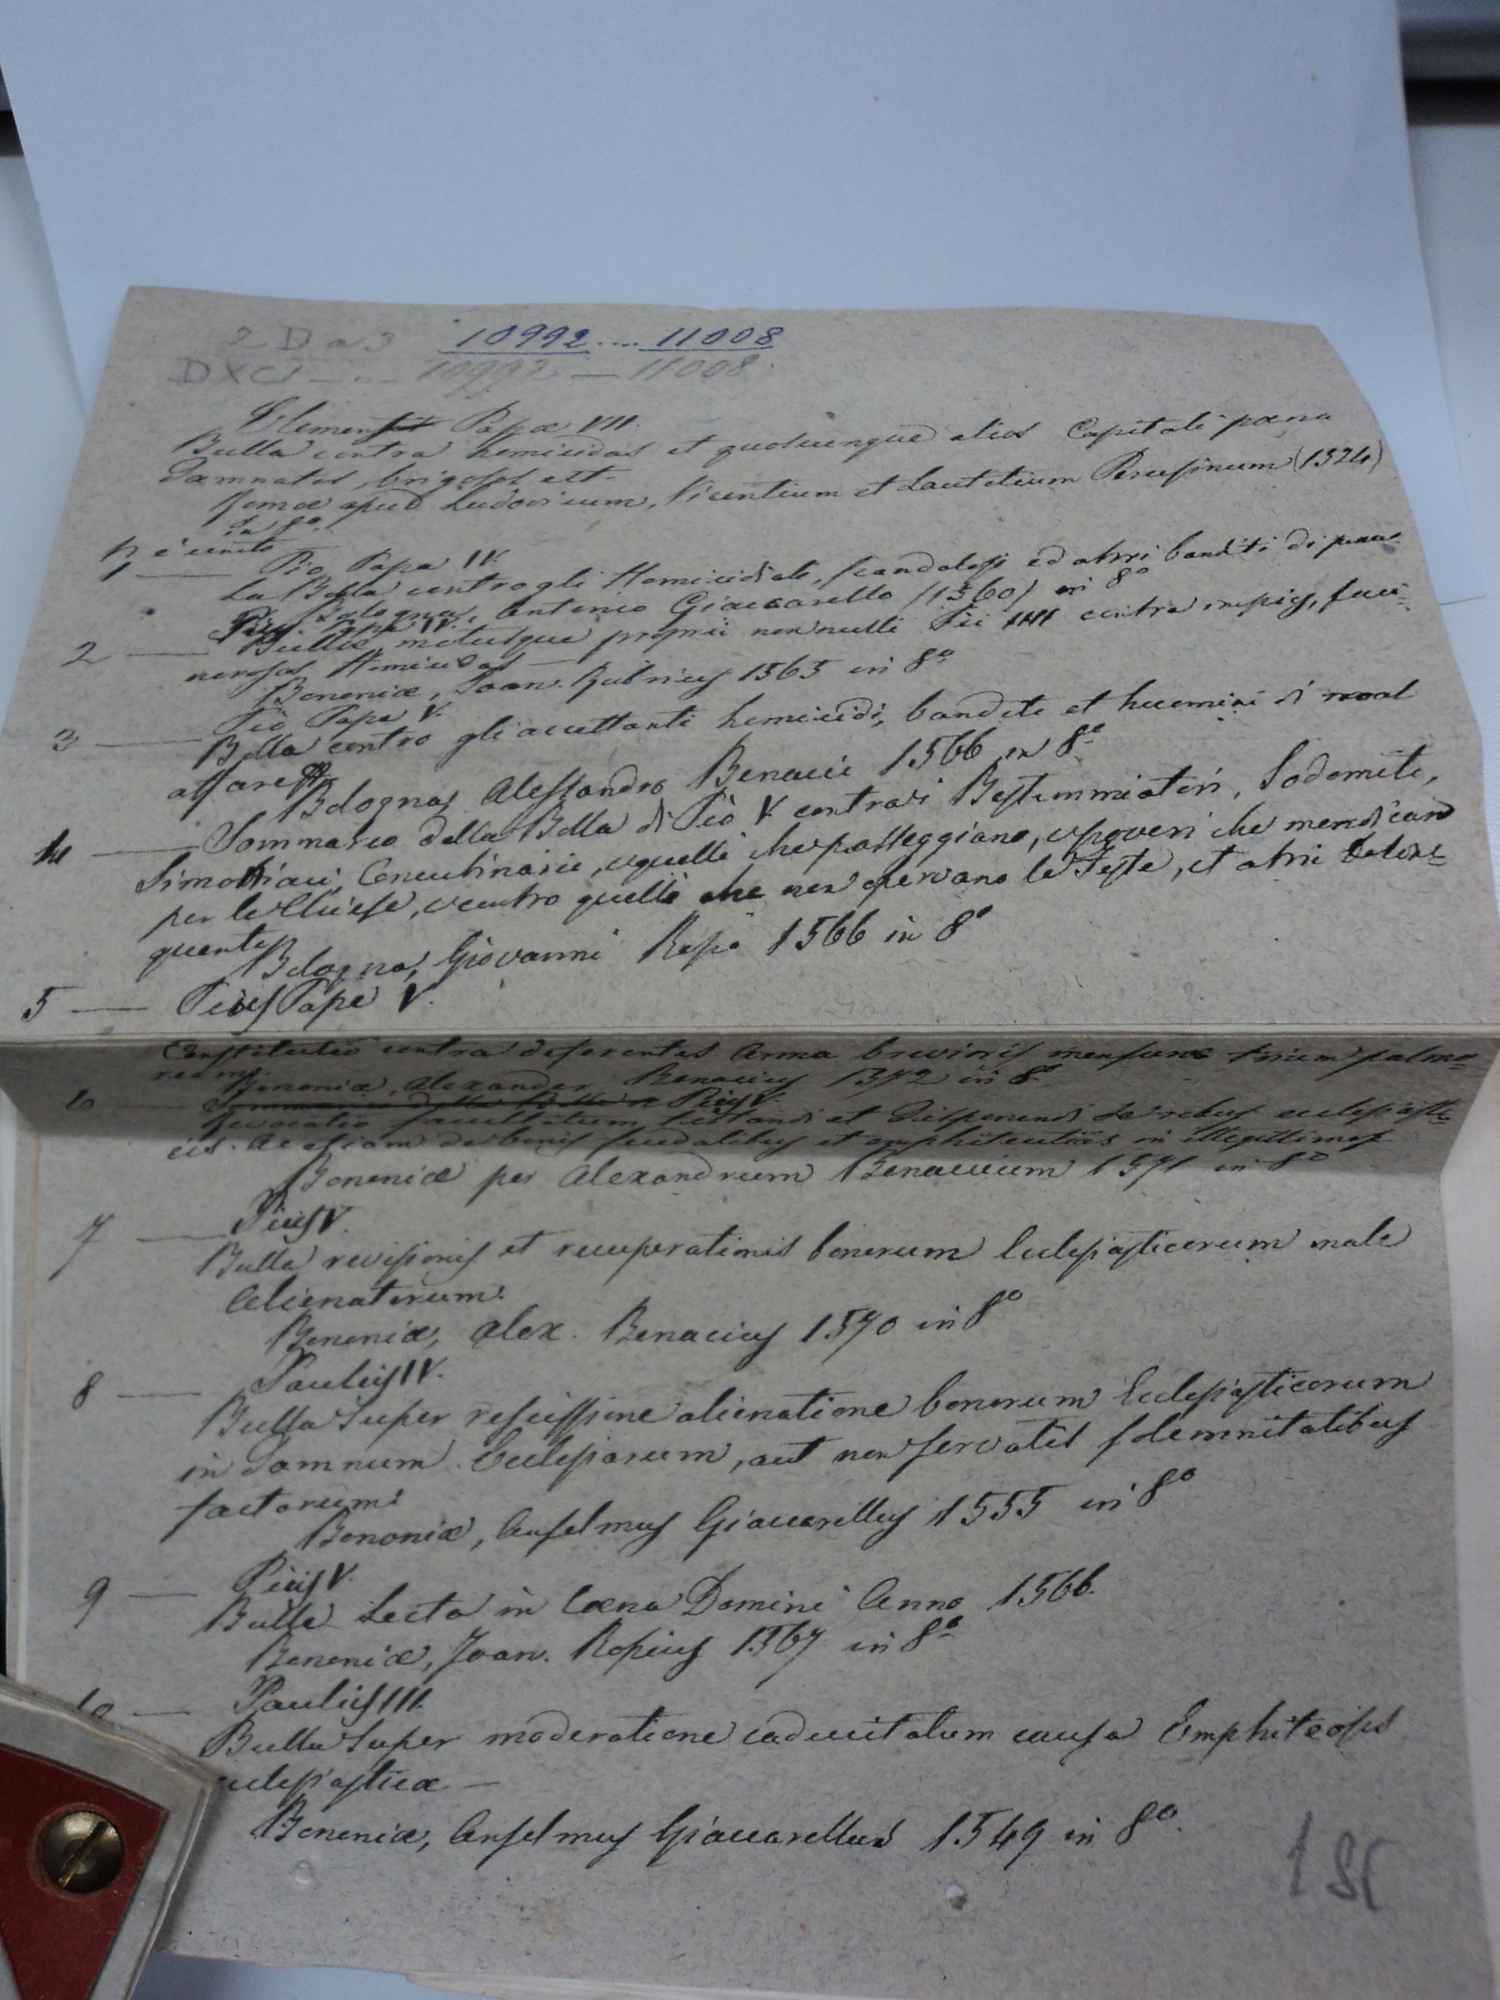 2 D a 3 10992 .... 11008
DXCI — .. — 10992 — 11008
Clementis Papæ VII.
Bulla contra homicidas et quoscunque alios Capitali pœna
Damnatos, brigosos ett.
Romæ apud Ludovicum, Vicentium et Lautitium Perusinum (1524)
in 8º
Vi è unito
1 — Pio Papa IV
La Bolla contro gli Homicidiali, scandalosi ed altri banditi di
Bologna, Antonio Giaccarello (1560) in 8º
Pius Papa IV.
2 — Bullæ motusque proprii nonnulli Pii IIII contra impios, faci-
norosos Homicidas —
Bononiæ, Joan. Rubrius 1565 in 8º
3 — Pio Papa V.
Bolla contro gli accettanti homicidi, banditi et huomini di mal
affare
Bologna, Alessandro Benacci 1566 in 8º
4 — Sommario della Bolla di Pio V contra i Bestemmiatori, Sodomiti,
Simoniaci, Concubinarii, e quelli che passeggiano, e poveri che mendicano
per le Chiese, e contro quelli che non osservano le Feste, et altri delin-
quenti
Bologna, Giovanni Rossi 1566 in 8º
5 — Pius Papa V.
Constitutio contra deferentes Arma brevioris mensuræ trium palmo-
rum.
Bononiæ, Alexander Benacius 1572 in 8º
6 — Sommario della Bolla Pius V.
Revocatio facultatum testandi et Disponendi de rebus ecclesiasti-
cis. Ac etiam de bonis feudalibus et emphiteuticis in illegittimos
Bononiæ per Alexandrum Benaccium 1571 in 8º
7 — Pius V.
Bulla revisionis et recuperationis bonorum Ecclesiasticorum male
Alienatorum.
Bononiæ, Alex. Benacius 1570 in 8º
8 — Paulus IV.
Bulla Super rescissione alienatione bonorum Ecclesiasticorum
in Damnum Ecclesiarum, aut non servatis solemnitatibus
factorum.
Bononiæ, Anselmus Giaccarellus 1555 in 8º
9 — Pius V.
Bulla Lecta in Cœna Domini Anno 1566.
Bononiæ, Joan. Rossius 1567 in 8º
10 — Paulus III.
Bulla Super moderatione caducitatum causa Emphiteosis
ecclesiasticæ —
Bononiæ, Anselmus Giaccarellus 1549 in 8º.